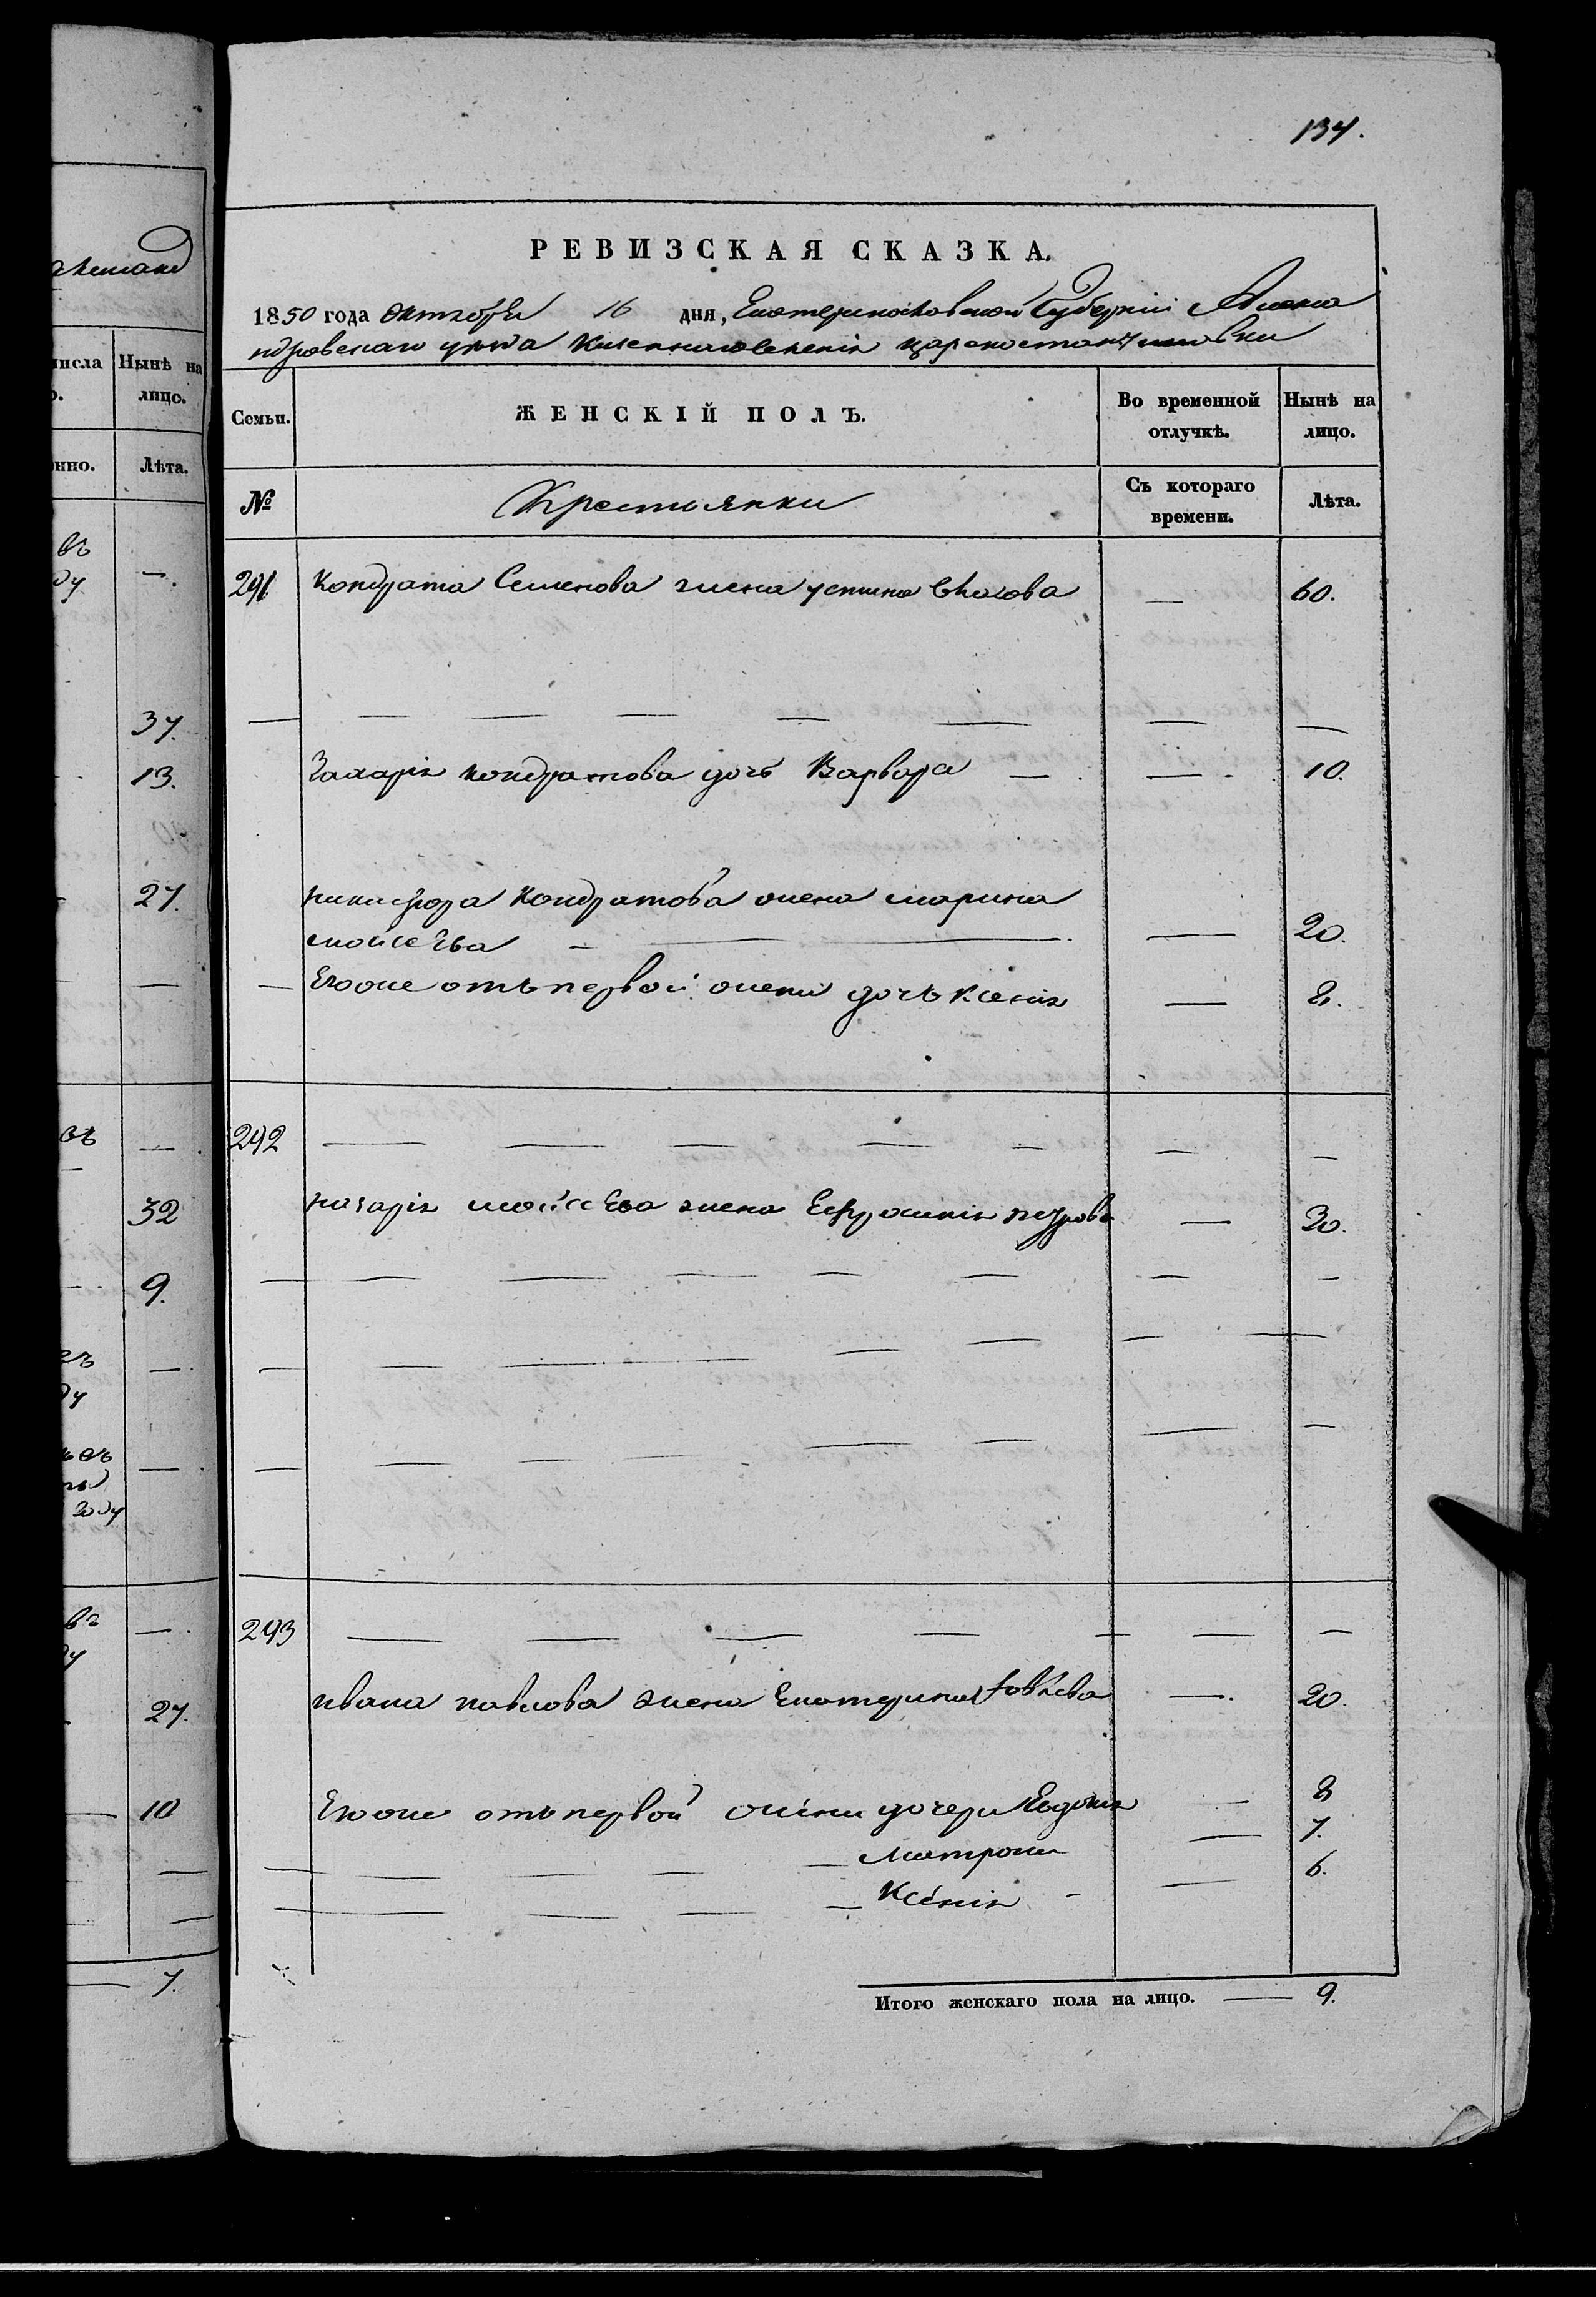 134.
РЕВИЗСКАЯ СКАЗКА.
1850 года октября 16 дня, Екатеринославской Губернии Алекса
ндровскаго уезда казеннаго селенія Цареконстантиновки
Семьи. ЖЕНСКІЙ ПОЛЪ. Во временной отлучкѣ. Нынѣ на лицо.
№ Крестьянки Съ котораго времени. Лѣта.
291 Кондрата Семенова жена устина Власова — 60.
— — — — — — — —
Захарія кондратова дочь Варвара — — 10.
никифора Кондратова жена марина
мойсеева — — — 20.
— Егоже отъ первой жены дочь ксенія — 8.
292 — — — — — — —
назарія мойсеева жена Ефросинія петрова — 30.
— — — — — — — —
— — — — — — —
— — — — — — — —
293 — — — — — — —
ивана павлова жена Екатерина — 20.
Егоже отъ первой жены дочери Евдокия — 8
— — — — — Матрона — 7.
— — — — — Ксенія - — 6.
Итого женскаго пола на лицо. — 9.
числа Нынѣ на
лицо.
Лѣта.
въ
ду —.
37.
13.
27.
—
въ —
32
9.
ду —
—
году
въ —.
ду
27.
— 10
—
—
— 7.